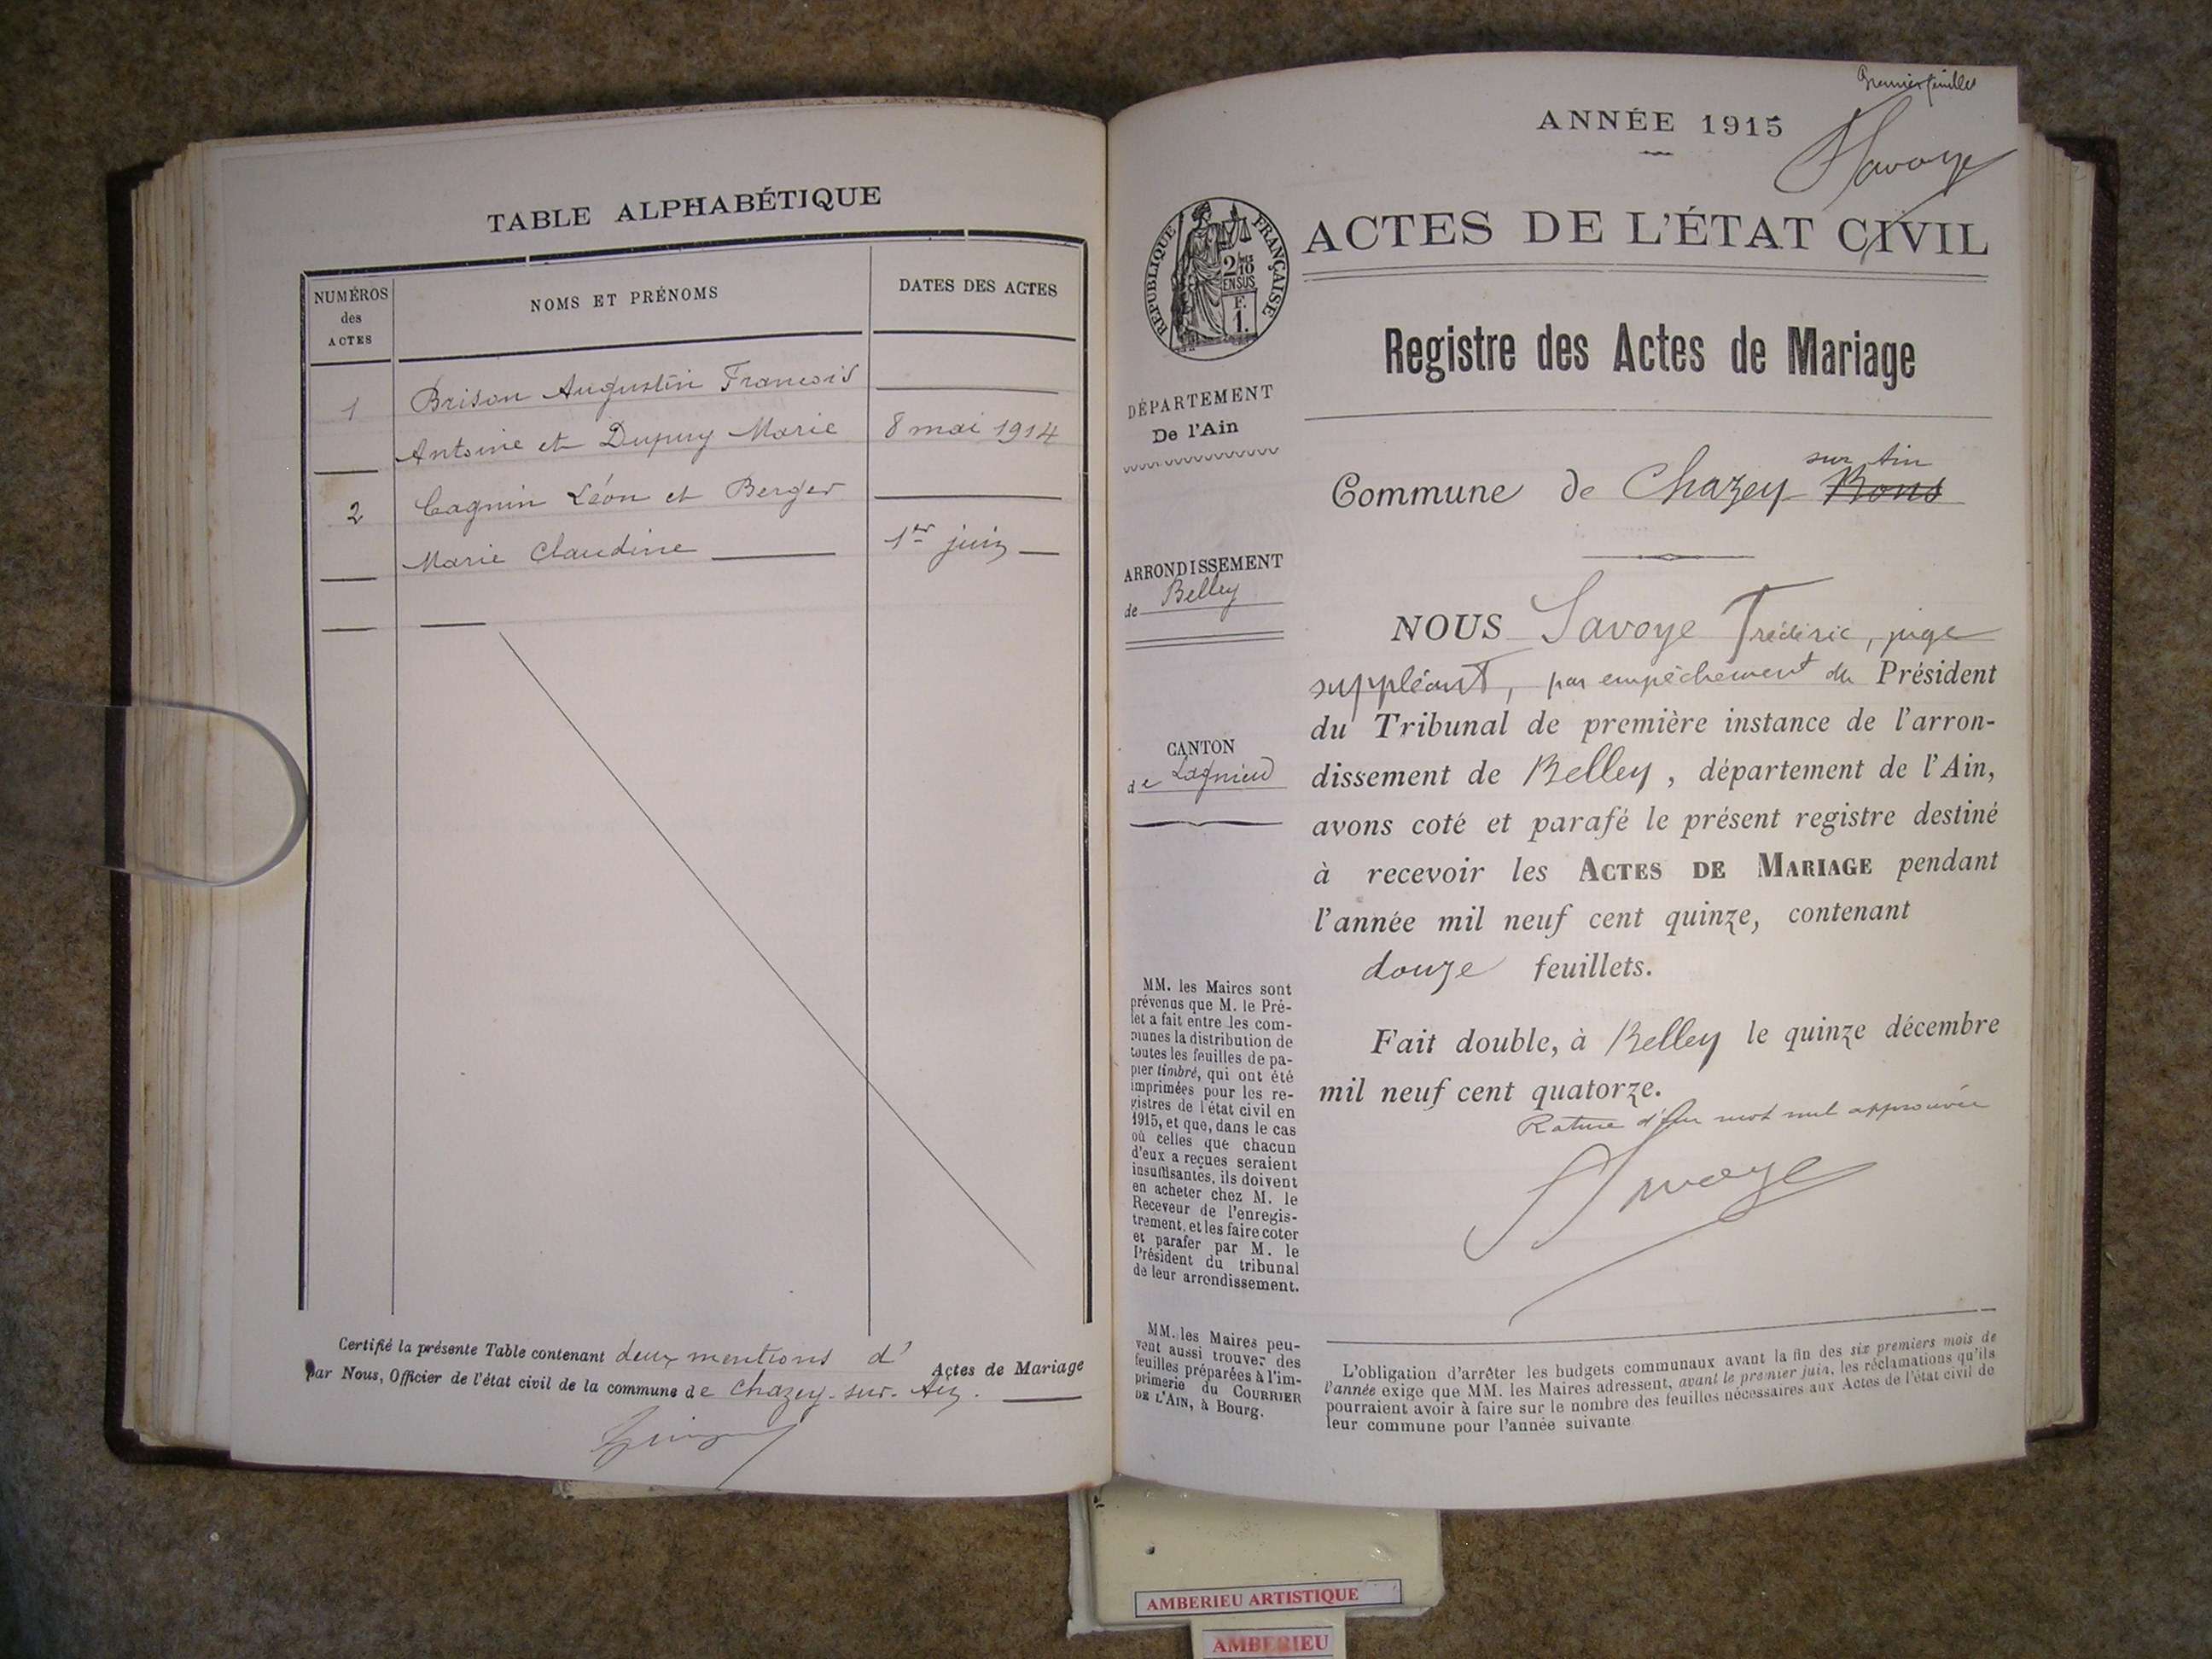 TABLE ALPHABÉTIQUE
NUMÉROS
des
ACTES
NOMS ET PRÉNOMS
DATES DES ACTES
1
Brison Augustin François
Antoine et Dupuy Marie
8 mai 1914
2
Cagnin Léon et Berger
Marie Claudine
1er juin
Certifié la présente Table contenant deux mentions d' Actes de Mariage
par Nous, Officier de l'état civil de la commune de Chazey-sur-Ain.
Premier feuillet
Savoye
ANNÉE 1915
RÉPUBLIQUE FRANÇAISE
2/10
EN SUS
F.
1.
ACTES DE L'ÉTAT CIVIL
Registre des Actes de Mariage
DÉPARTEMENT
De l'Ain
ARRONDISSEMENT
de Belley
CANTON
de Lagnieu
sur Ain
Commune de Chazey Bons
NOUS Savoye Frédéric, juge
suppléant, par empêchement du Président
du Tribunal de première instance de l'arron-
dissement de Belley, département de l'Ain,
avons coté et parafé le présent registre destiné
à recevoir les ACTES DE MARIAGE pendant
l'année mil neuf cent quinze, contenant
douze feuillets.
Fait double, à Belley le quinze décembre
mil neuf cent quatorze.
Rature d'un mot nul approuvée
Savoye
MM. les Maires sont
prévenus que M. le Pré-
fet a fait entre les com-
munes la distribution de
toutes les feuilles de pa-
pier timbré, qui ont été
imprimées pour les re-
gistres de l'état civil en
1915, et que, dans le cas
où celles que chacun
d'eux a reçues seraient
insuffisantes, ils doivent
en acheter chez M. le
Receveur de l'enregis-
trement, et les faire coter
et parafer par M. le
Président du tribunal
de leur arrondissement.
MM. les Maires peu-
vent aussi trouver des
feuilles préparées à l'im-
primerie du COURRIER
DE L'AIN, à Bourg.
L'obligation d'arrêter les budgets communaux avant la fin des six premiers mois de
l'année exige que MM. les Maires adressent, avant le premier juin, les réclamations qu'ils
pourraient avoir à faire sur le nombre des feuilles nécessaires aux Actes de l'état civil de
leur commune pour l'année suivante
AMBERIEU ARTISTIQUE
AMBERIEU